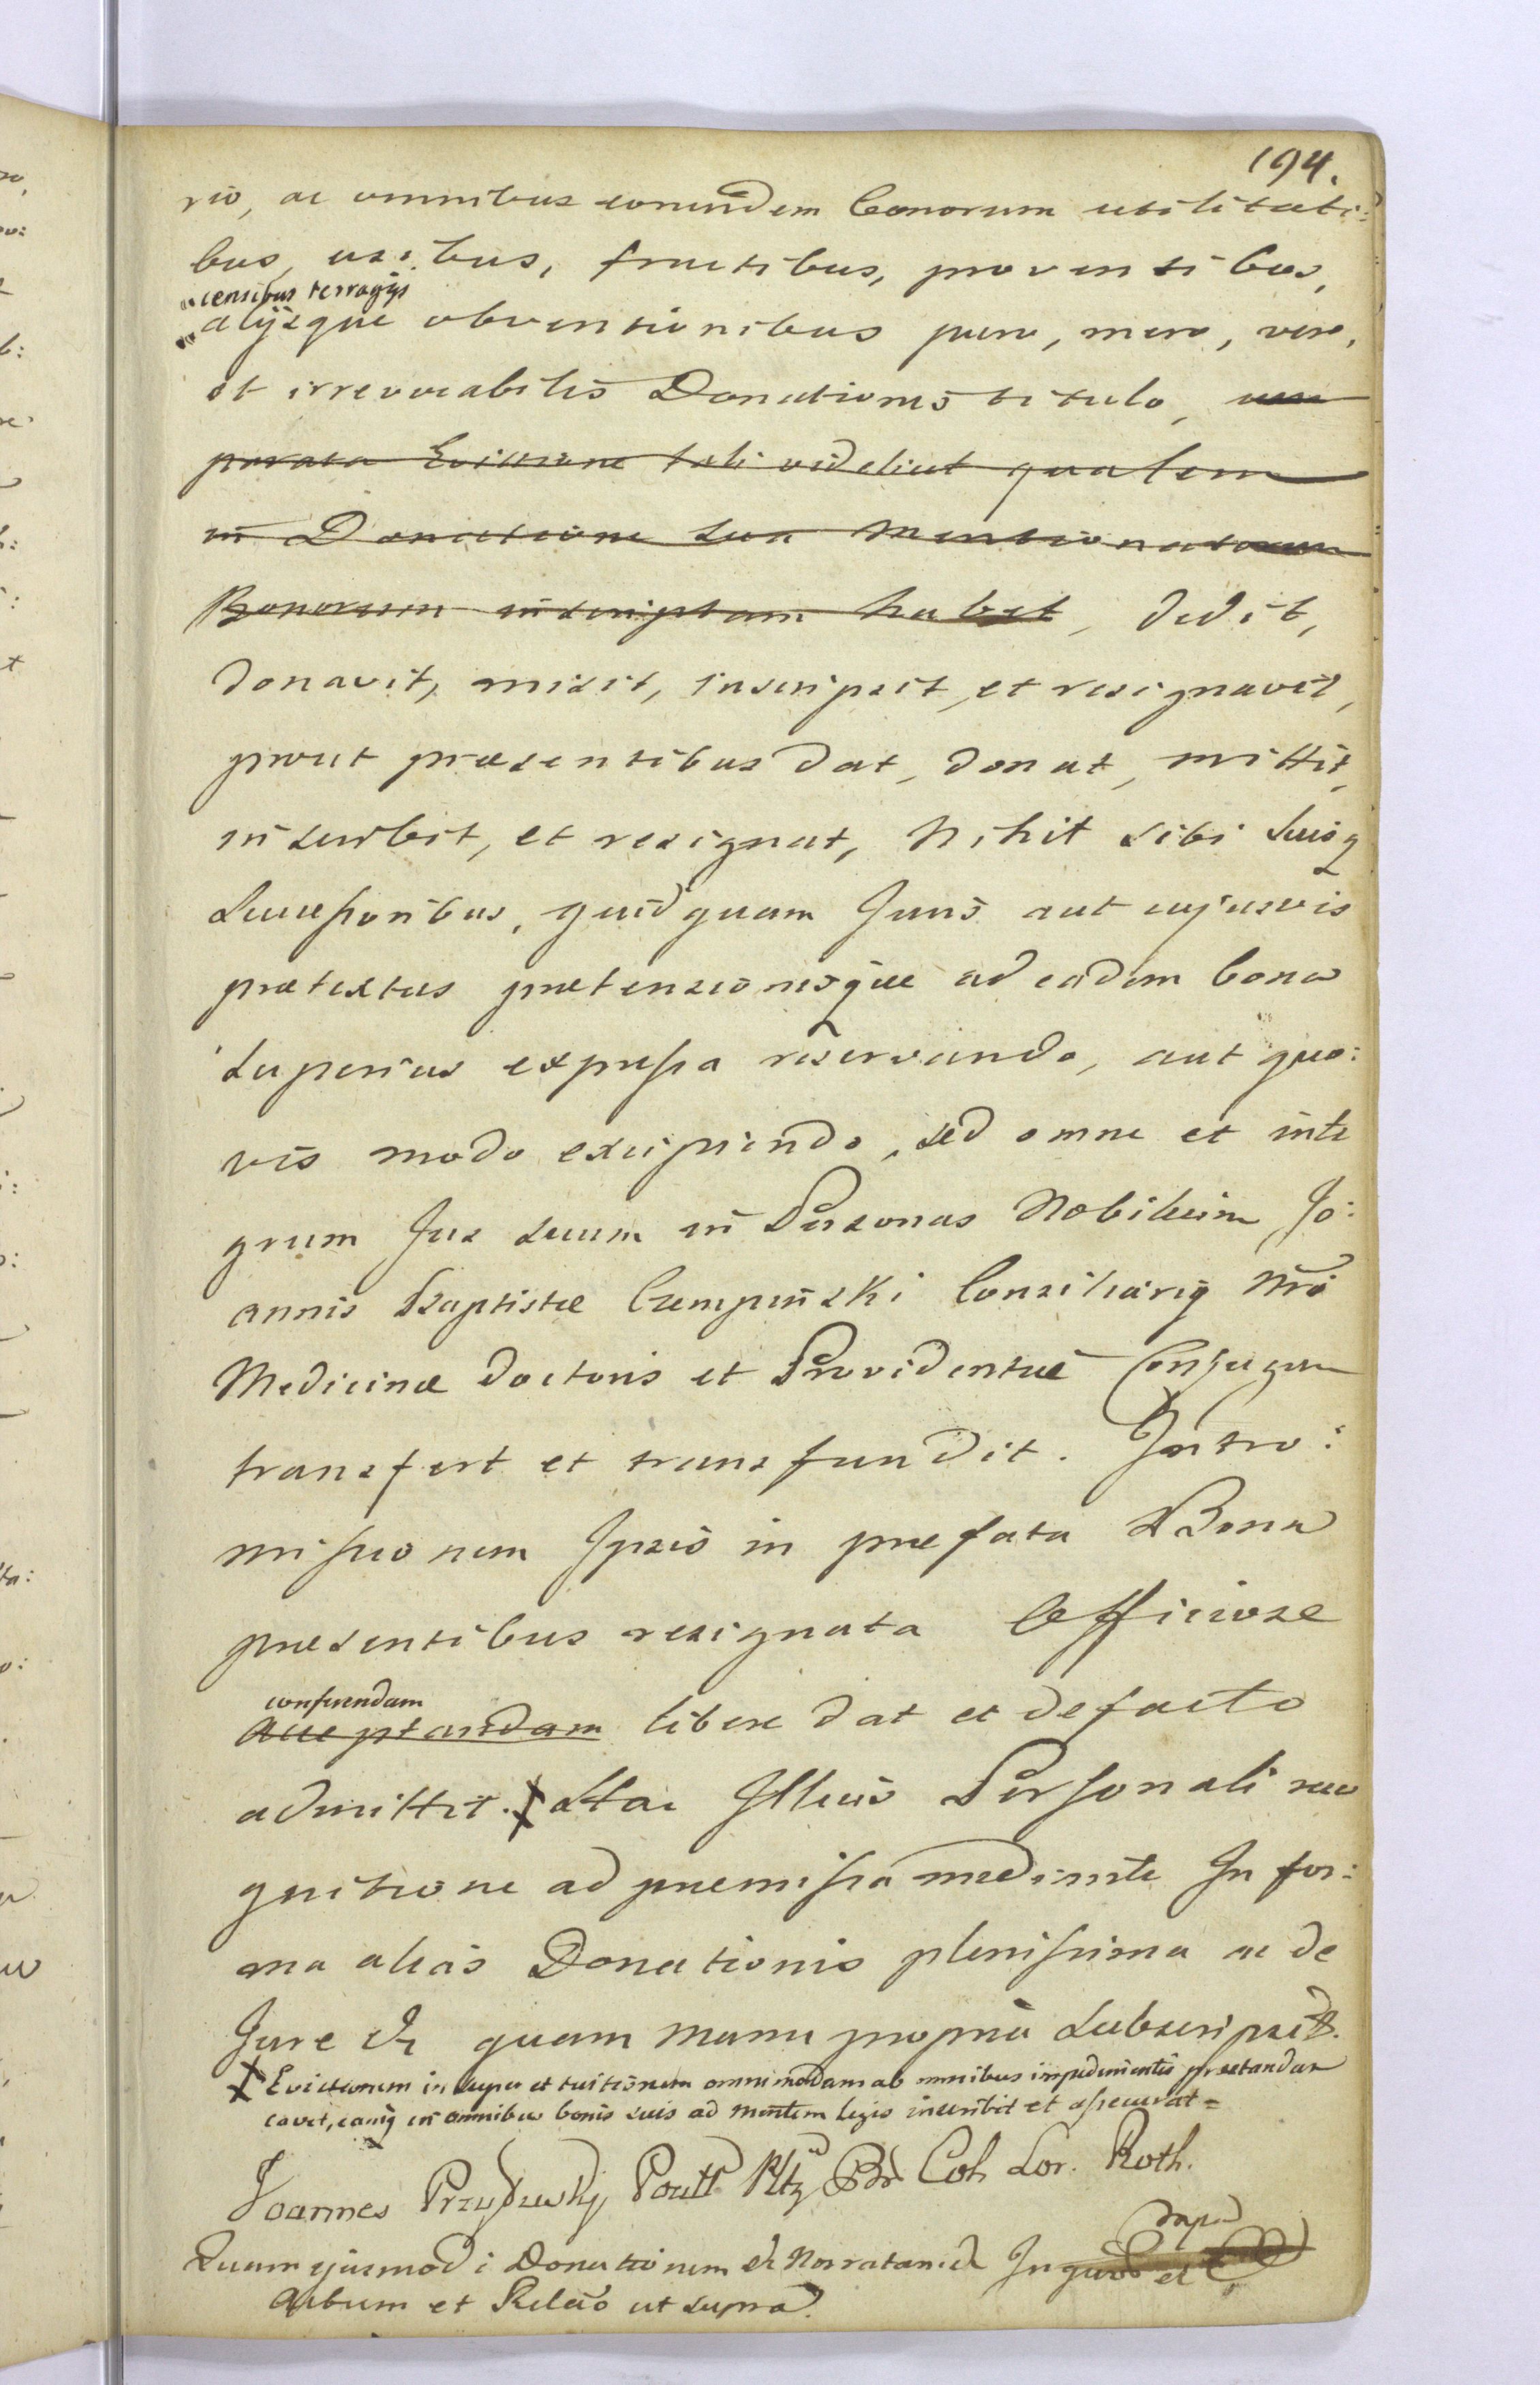 194.
rio, ac omnibus eorundem bonorum utilitati:
bus, usibus, fructibus, proventibus,
censibus terragijs
alijsque obventionibus puro, mero, vero,
et irrevocabilis Donationis titulo,
Evictione tali videlicet qualem
in Donatione sua mentionatorum
Bonorum inscriptam habet, dedit,
donavit, misit, inscripsit, et resignavit,
prout præsentibus dat, donat, mittit,
inscribit, et resignat, Nihil sibi suisq
Successoribus, quidquam Juris aut cujusvis
prætextus prætensionisque ad eadem bona
superius expressa reservando, aut quo:
vis modo excipiendo, sed omne et inte
grum Jus suum in Personas Nobilium Jo:
annis Baptistæ Czempiński Consiliarij Nri
Medicinæ Doctoris et Providentiæ Conjugum
transfert et transfundit. Intro:
missionem Ipsis in præfata Bona
præsentibus resignata Officiose
conferendam
acceptandam libere dat et de facto
admittit. X Hac Illius Personali reco
gnitione ad præmissa mediante In for:
ma alias Donationis plenissima ac de
Jure quam manu propria subscripsit.
X Evictionem insuper et tuitionem omnimodam ab omnibus impedimentis præstandam
cavet, eamq in omnibus bonis suis ad mentem legis inscribit et assecurat =
Joannes Coh Lor. Roth.
Quam ejusmodi Donationem
Actum et Relatio ut supra.